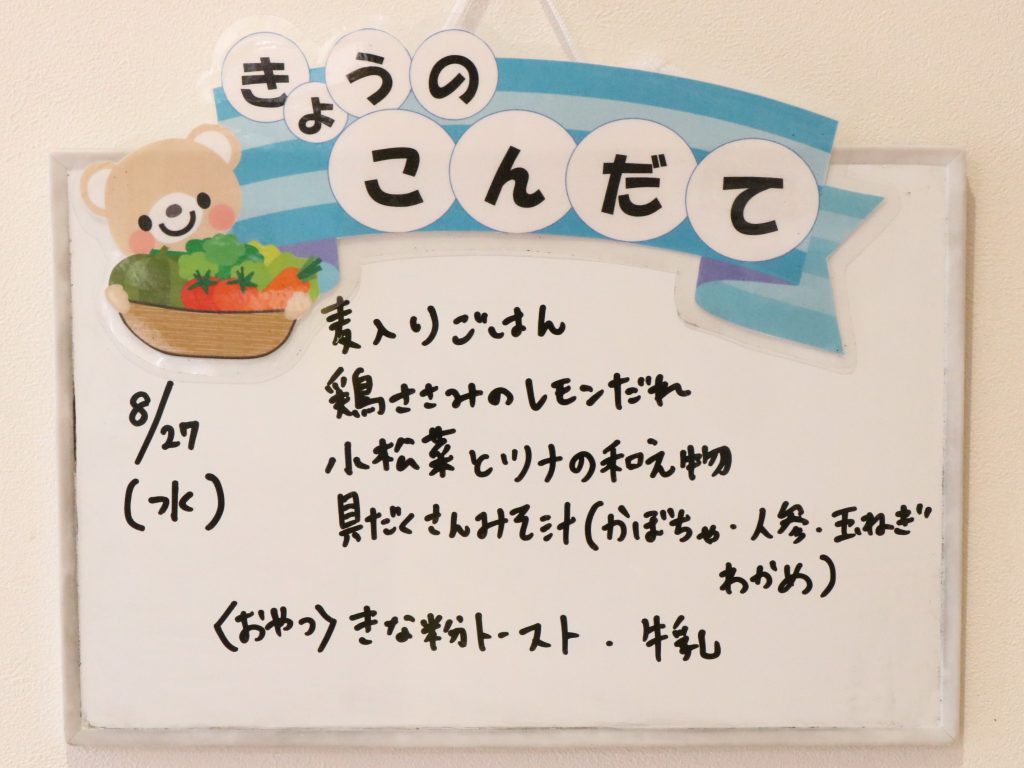 きょうの
こんだて
麦入りごはん
8/27
(水)
鶏ささみのレモンだれ
小松菜とツナの和え物
具だくさんみそ汁(かぼちゃ・人参・玉ねぎ
わかめ)
〈おやつ〉きな粉トースト・牛乳